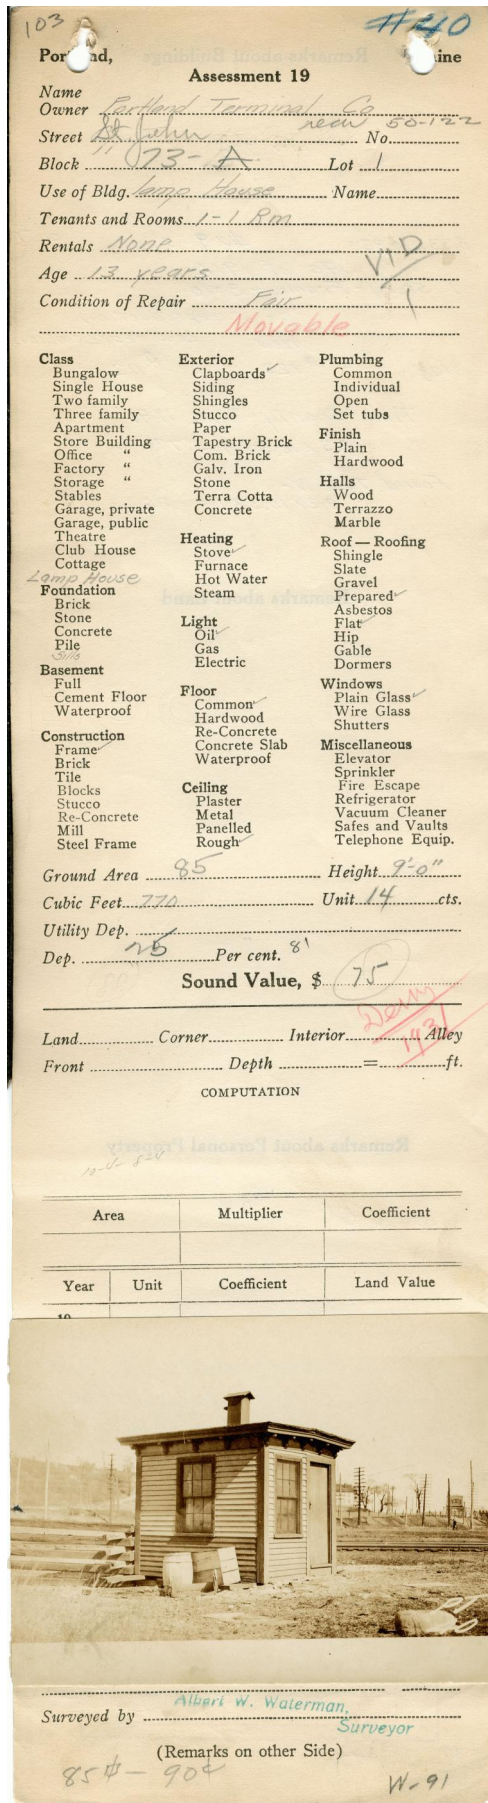 103 #40
Portland, Maine
Assessment 19
Name
Owner Portland Terminal Co
Street St. John rear 50-122 No.
Block " 73-A Lot 1
Use of Bldg. Lamp House Name
Tenants and Rooms 1-1 Rm
Rentals None
Age 13 years
Condition of Repair Fair
Movable
Class
Bungalow
Single House
Two family
Three family
Apartment
Store Building
Office "
Factory "
Storage "
Stables
Garage, private
Garage, public
Theatre
Club House
Cottage
Lamp House
Foundation
Brick
Stone
Concrete
Pile
Sills
Basement
Full
Cement Floor
Waterproof
Construction
Frame ✓
Brick
Tile
Blocks
Stucco
Re-Concrete
Mill
Steel Frame
Exterior
Clapboards ✓
Siding
Shingles
Stucco
Paper
Tapestry Brick
Com. Brick
Galv. Iron
Stone
Terra Cotta
Concrete
Heating
Stove ✓
Furnace
Hot Water
Steam
Light
Oil ✓
Gas
Electric
Floor
Common ✓
Hardwood
Re-Concrete
Concrete Slab
Waterproof
Ceiling
Plaster
Metal
Panelled
Rough ✓
Plumbing
Common
Individual
Open
Set tubs
Finish
Plain
Hardwood
Halls
Wood
Terrazzo
Marble
Roof — Roofing
Shingle
Slate
Gravel
Prepared ✓
Asbestos
Flat ✓
Hip
Gable
Dormers
Windows
Plain Glass ✓
Wire Glass
Shutters
Miscellaneous
Elevator
Sprinkler
Fire Escape
Refrigerator
Vacuum Cleaner
Safes and Vaults
Telephone Equip.
Ground Area 85 Height 9'-0"
Cubic Feet 770 Unit 14 cts.
Utility Dep.
Dep. 25 Per cent. 81
Sound Value, $ 75
Land Corner Interior Alley
Front Depth = ft.
COMPUTATION
Area Multiplier Coefficient
Year Unit Coefficient Land Value
19
Albert W. Waterman,
Surveyed by Surveyor
(Remarks on other Side)
85¢ — 90¢
W-91